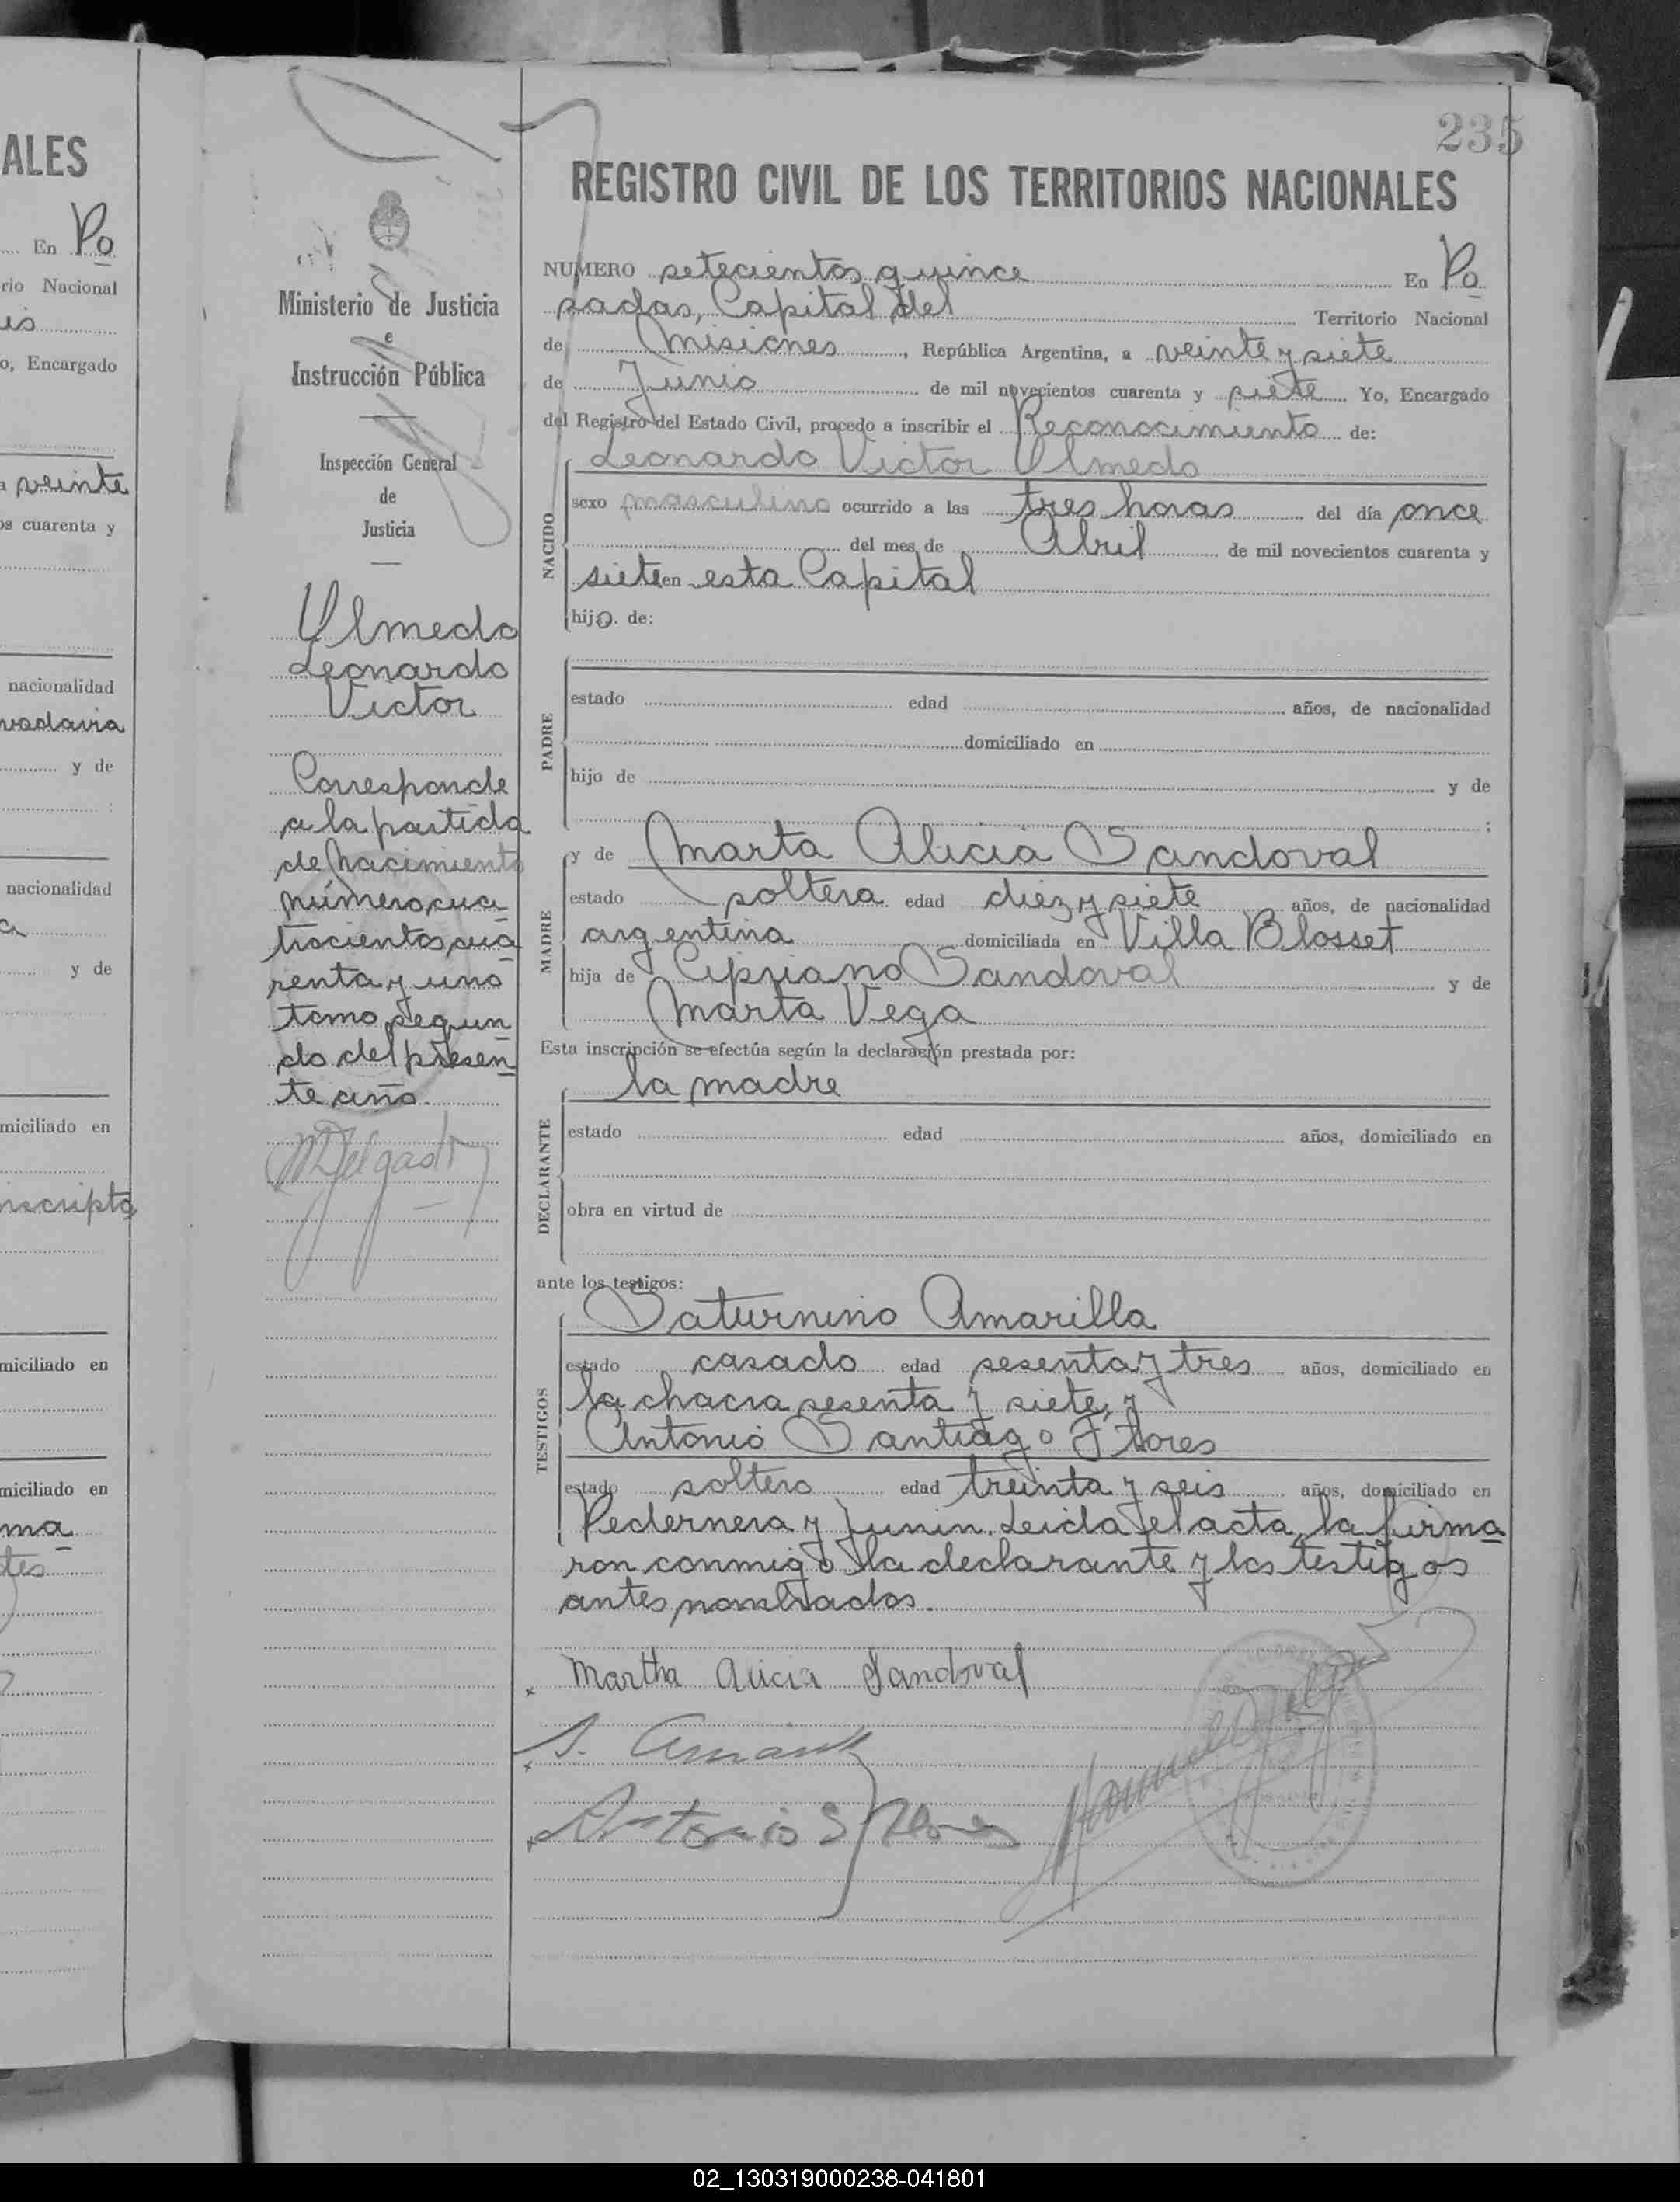 ALES
En Po
rio Nacional
o, Encargado
a veinte
os cuarenta y
nacionalidad
vadavia
y de
nacionalidad
y de
miciliado en
inscripto
miciliado en
miciliado en
ma
tes
235
REGISTRO CIVIL DE LOS TERRITORIOS NACIONALES
Ministerio de Justicia
e
Instrucción Pública
Inspección General
de
Justicia
Olmedo
Leonardo
Victor
Corresponde
a la partida
de nacimiento
número cua
trocientos cua
renta y uno
tomo segun
do del presen
te año.
MDelgado
NUMERO setecientos quince En Po
sadas, Capital del Territorio Nacional
de Misiones, República Argentina, a veinte y siete
de Junio de mil novecientos cuarenta y siete Yo, Encargado
del Registro del Estado Civil, procedo a inscribir el Reconocimiento de:
NACIDO
Leonardo Victor Olmedo
sexo masculino ocurrido a las tres horas del día once
del mes de Abril de mil novecientos cuarenta y
siete en esta Capital
hijo. de:
PADRE
estado edad años, de nacionalidad
domiciliado en
hijo de y de
;
MADRE
y de Marta Alicia Sandoval
estado soltera edad diez y siete años, de nacionalidad
argentina domiciliada en Villa Blosset
hija de Cipriano Sandoval y de
Marta Vega
Esta inscripción se efectúa según la declaración prestada por:
DECLARANTE
la madre
estado edad años, domiciliado en
obra en virtud de
ante los testigos:
TESTIGOS
Saturnino Amarilla
estado casado edad sesenta y tres años, domiciliado en
la chacra sesenta y siete, y
Antonio Santiago Flores
estado soltero edad treinta y seis años, domiciliado en
Pedernera y Junin. Leida el acta, la firma
ron conmigo la declarante y los testigos
antes nombrados.
x Martha Alicia Sandoval
x S. Amarilla
x Antonio S Flores
02_130319000238-041801